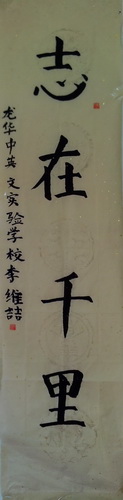 志在千里
龙华中英文实验学校李维喆